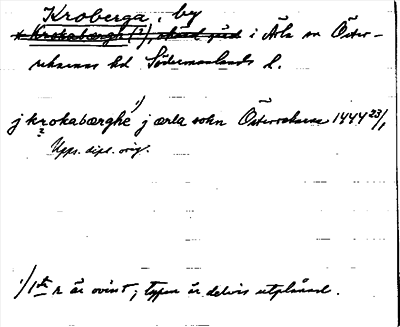 Kroberga, by
* Krokabærghe (?), okänd gård i Ärla sn Öster-
rekarnes hd Södermanlands l.
j krokabærghe 1) j ærla sokn Österrekarne 1444 23/1
?
Upps. dipl. orig.
1/ 1sta r är ovisst; typen är delvis utplånad.